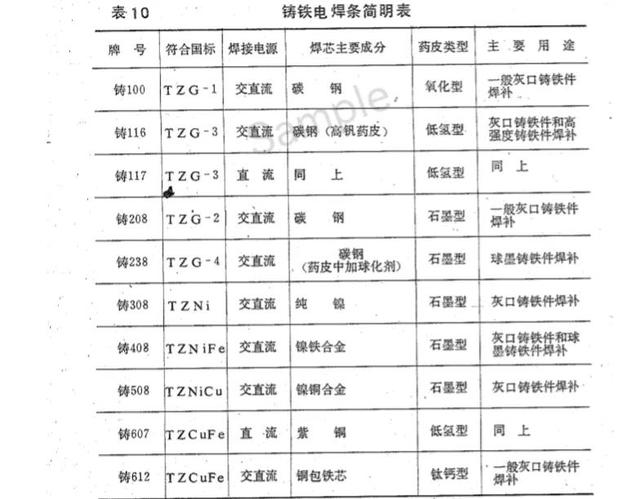 表10 铸铁电焊条简明表
牌 号 符合国标 焊接电源 焊芯主要成分 药皮类型 主 要 用 途
铸100 TZG-1 交直流 碳 钢 氧化型 一般灰口铸铁件
焊补
铸116 TZG-3 交直流 碳钢(高钒药皮) 低氢型 灰口铸铁件和高
强度铸铁件焊补
铸117 TZG-3 直 流 同 上 低氢型 同 上
铸208 TZG-2 交直流 碳 钢 石墨型 一般灰口铸铁件
焊补
铸238 TZG-4 交直流 碳钢
(药皮中加球化剂) 石墨型 球墨铸铁件焊补
铸308 TZNi 交直流 纯 镍 石墨型 灰口铸铁件焊补
铸408 TZNiFe 交直流 镍铁合金 石墨型 灰口铸铁件和球
墨铸铁件焊补
铸508 TZNiCu 交直流 镍铜合金 石墨型 灰口铸铁件焊补
铸607 TZCuFe 直 流 紫 铜 低氢型 同 上
铸612 TZCuFe 交直流 铜包铁芯 钛钙型 一般灰口铸铁件
焊补
Sample